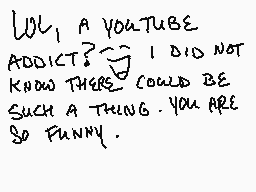 LOL, A YOUTUBE
ADDICT? I DID NOT
KNOW THERE COULD BE
SUCH A THING. YOU ARE
SO FUNNY.